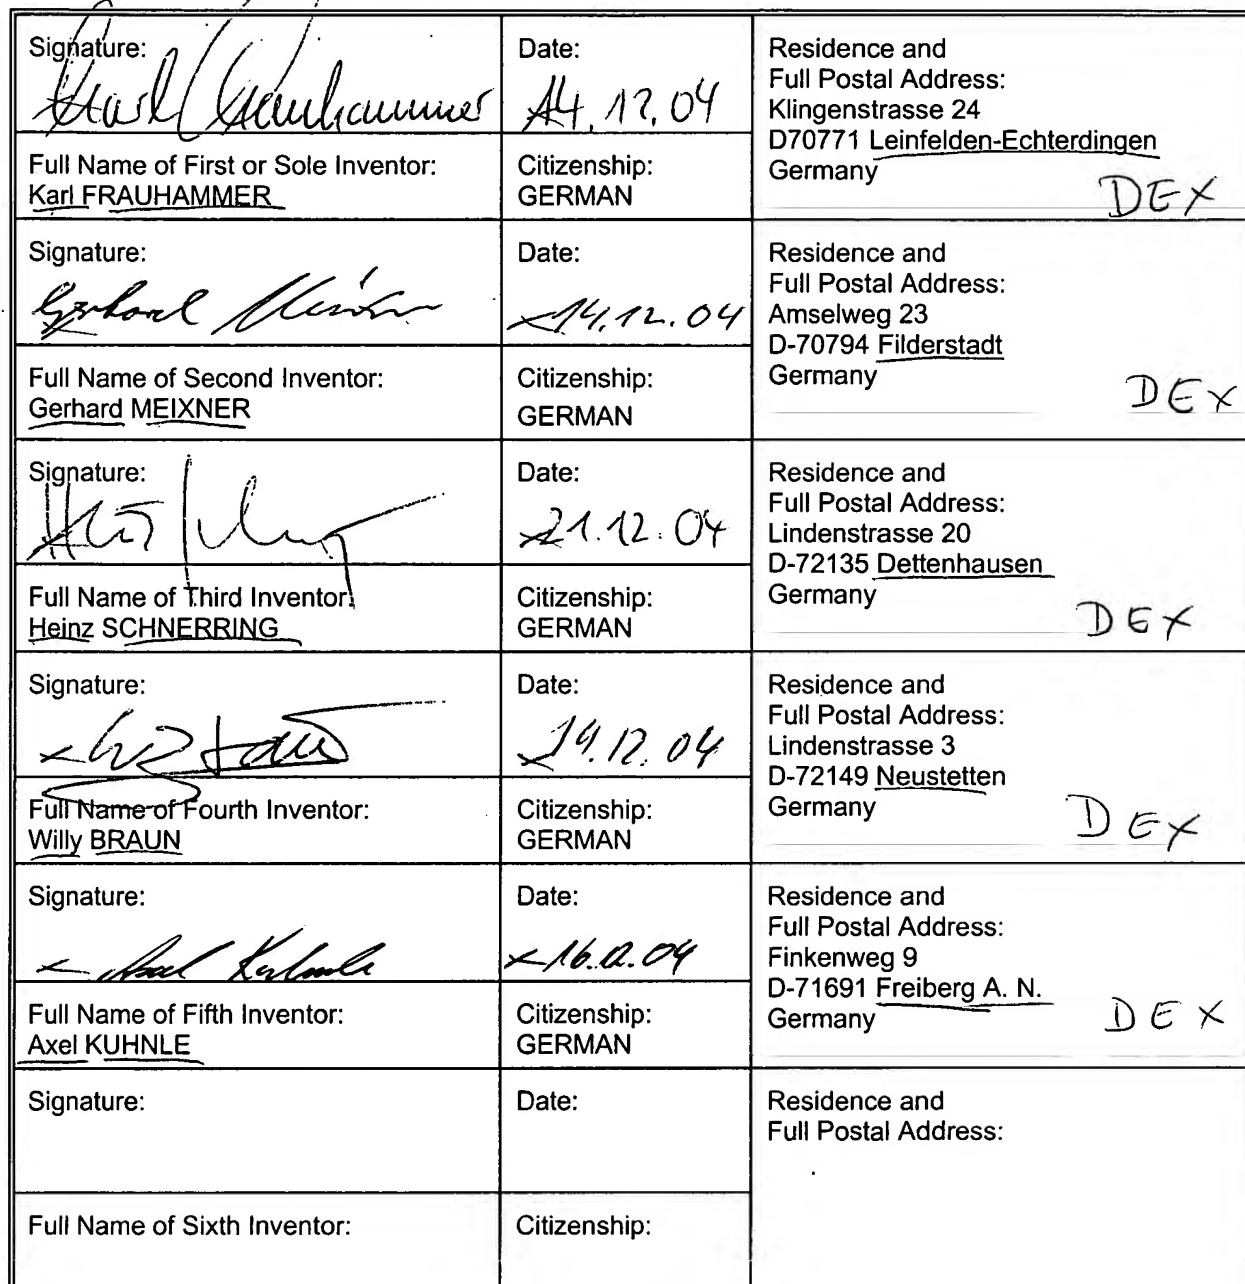 Signature:
Karl Frauhammer
Date:
14.12.04
Residence and
Full Postal Address:
Klingenstrasse 24
D70771 Leinfelden-Echterdingen
Germany
DEX
Full Name of First or Sole Inventor:
Karl FRAUHAMMER
Citizenship:
GERMAN
Signature:
Gerhard Meixner
Date:
14.12.04
Residence and
Full Postal Address:
Amselweg 23
D-70794 Filderstadt
Germany
DEX
Full Name of Second Inventor:
Gerhard MEIXNER
Citizenship:
GERMAN
Signature:
Date:
21.12.04
Residence and
Full Postal Address:
Lindenstrasse 20
D-72135 Dettenhausen
Germany
DEX
Full Name of Third Inventor:
Heinz SCHNERRING
Citizenship:
GERMAN
Signature:
Date:
Residence and
Full Postal Address:
Lindenstrasse 3
D-72149 Neustetten
Germany
DEX
Full Name of Fourth Inventor:
Willy BRAUN
Citizenship:
GERMAN
Signature:
Axel Kuhnle
Date:
16.12.04
Residence and
Full Postal Address:
Finkenweg 9
D-71691 Freiberg A. N.
Germany
DEX
Full Name of Fifth Inventor:
Axel KUHNLE
Citizenship:
GERMAN
Signature:
Date:
Residence and
Full Postal Address:
Full Name of Sixth Inventor:
Citizenship: